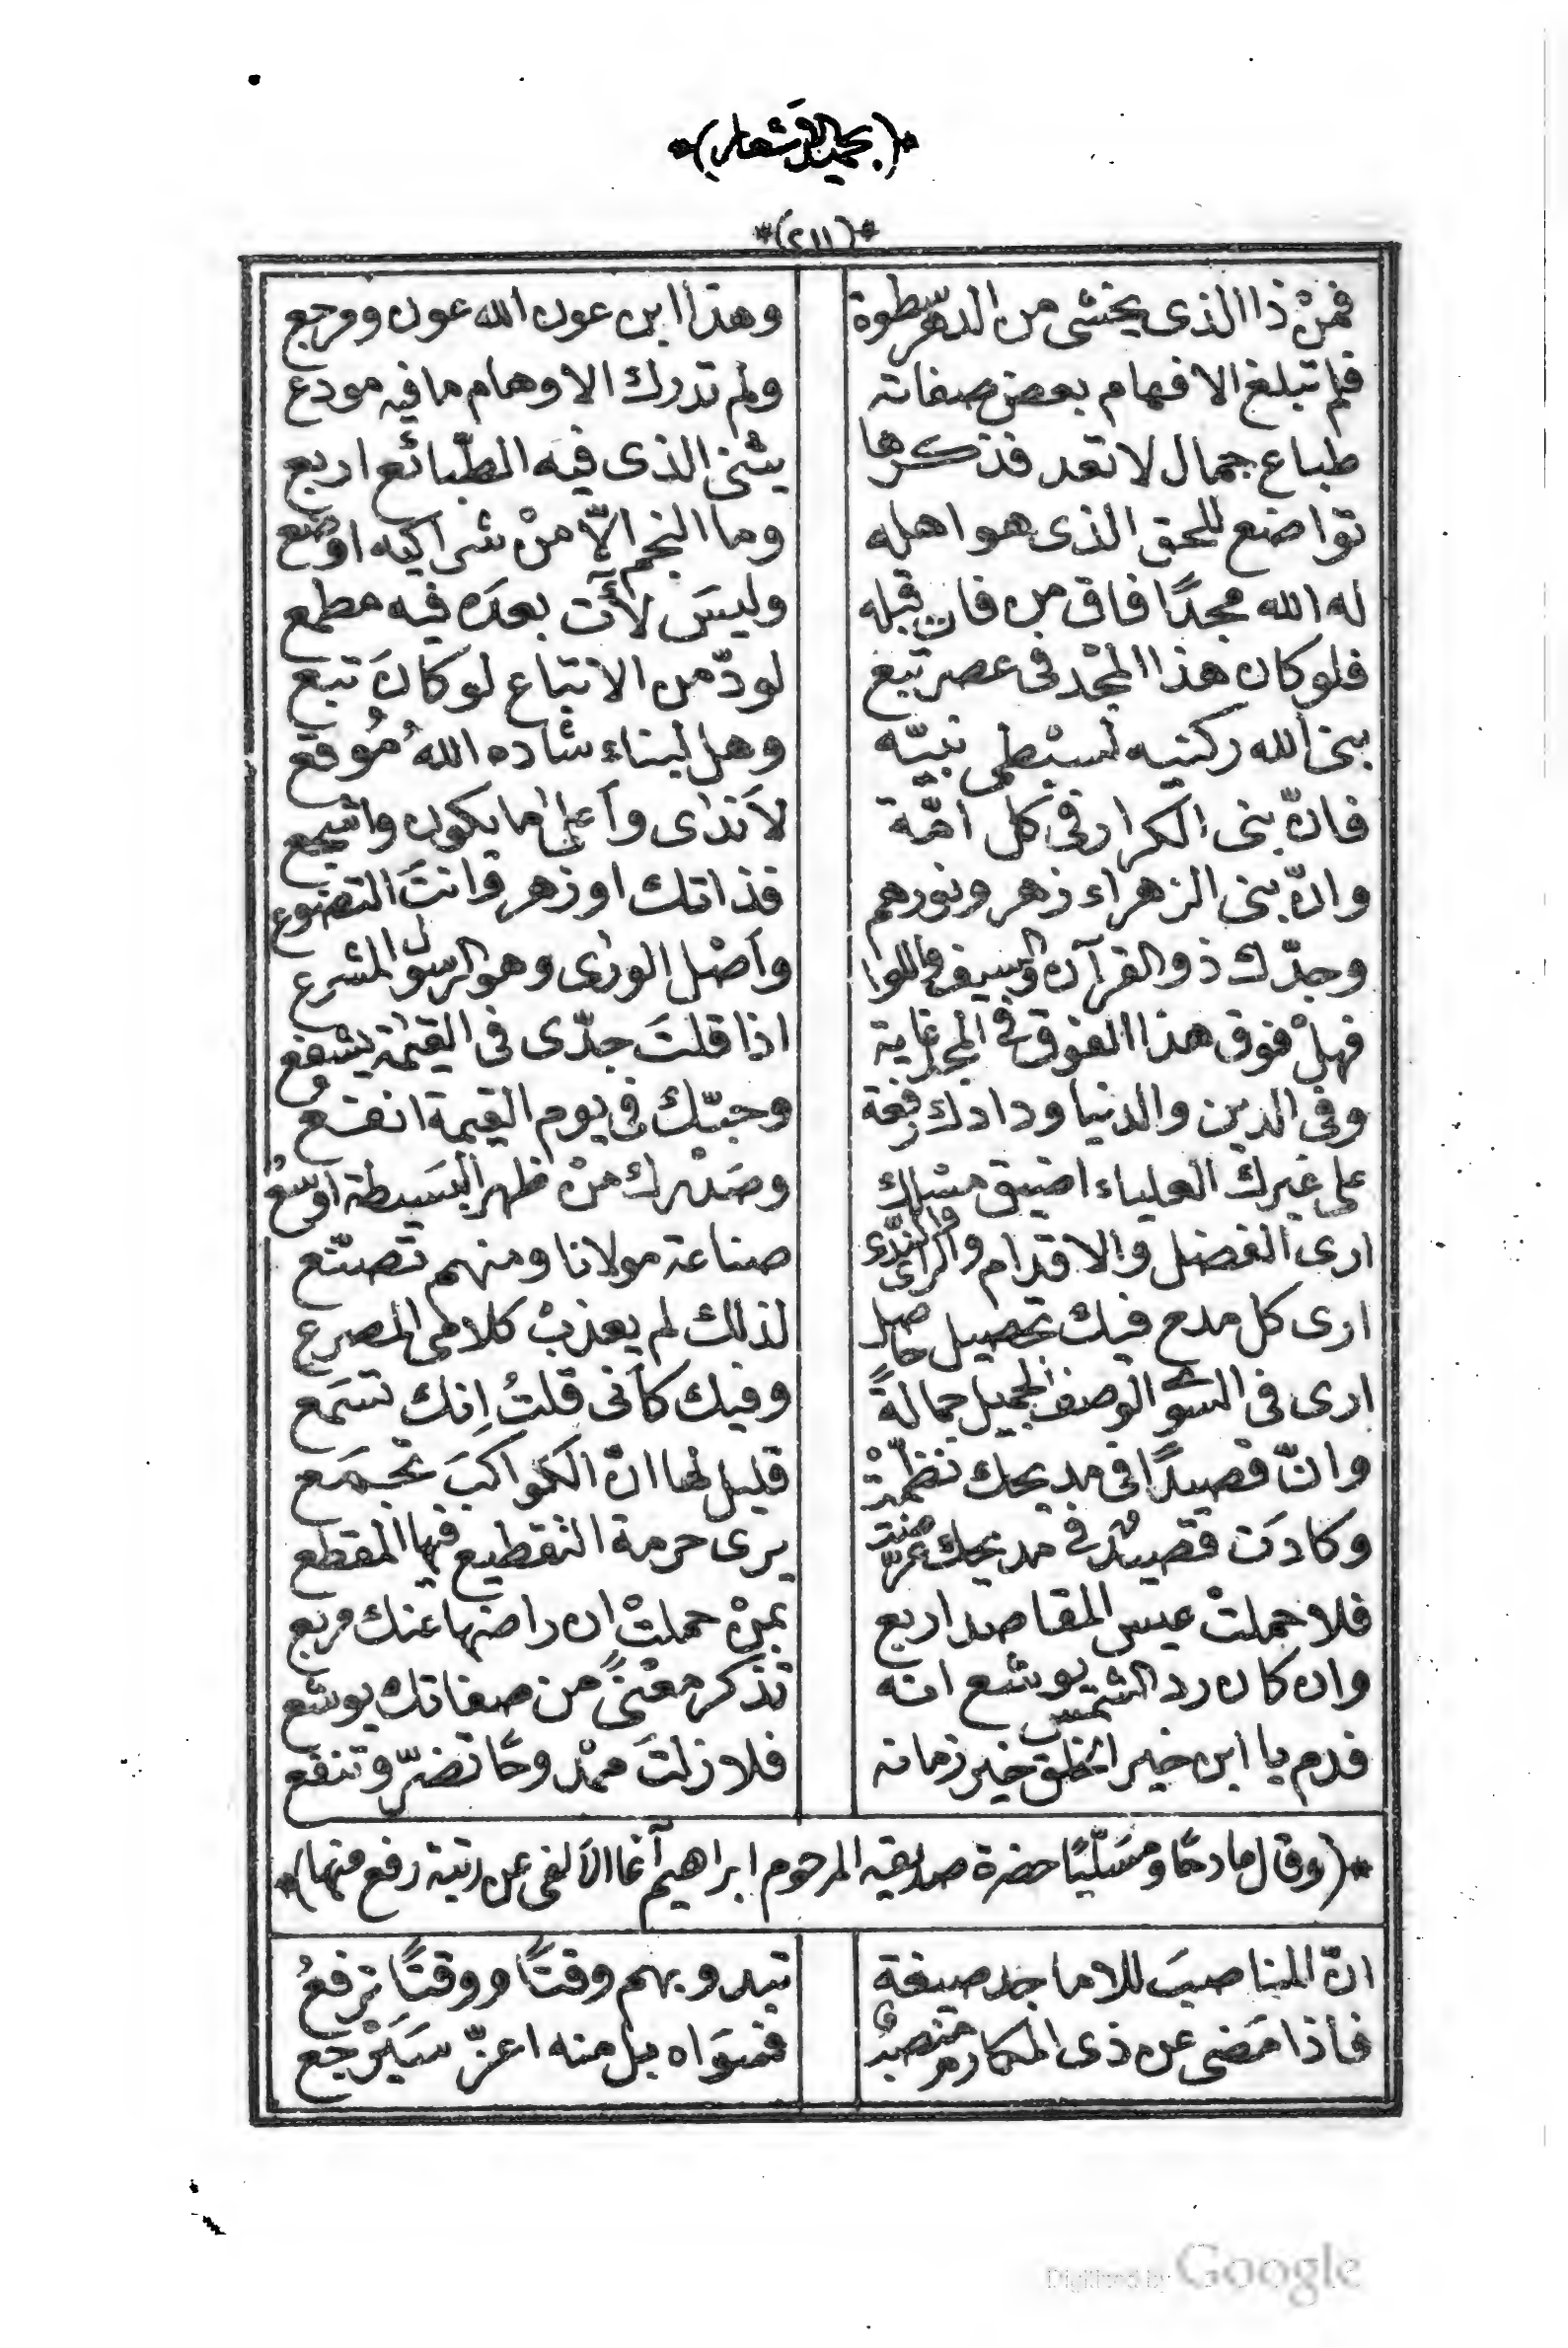 *(بجميل الاشعار)*
*(٢١١)*
فمنْ ذا الذى يخشى من الدهر سطوة وهذا ابن عون الله عون ومرجع
فلم تبلغ الافهام بعض صفاته ولم تدرك الاوهام ما فيه مودع
طباع جمال لا تعد فذكرها يثنى الذى فيه الطّبائع اربع
تواضع للحق الذى هو اهله وما النجم الاّ منْ شراكيه اوضع
له الله مجدًا فاق من فات قبله وليسَ لآت بعدَه فيه مطمع
فلو كان هذا المجْد فى عصر تبع لودّ من الاتباع لو كانَ تبع
بنى الله ركنيه لسبْطى نبيّه وهل لبناء شاده اللهُ مُوقع
فانّ بنى الكرار فى كل امّة لاَندٰى وأعلٰى ما يكون واشجع
وانّ بنى الزهراء زهر ونورهم فذاتك اوزهر فانتَ التضوع
وجدّك ذو القرآن والسيف واللوا وأصْل الورٰى وهو الرسول المشرع
فهلْ فوق هذا الفوق فى المجد غاية اذا قلتَ جدّى فى القيٰمة يشفع
وفى الدين والدنيا ودادك رفعة وحبّك فى يوم القيمة انفع
على غيرك العلياء اضيق مسْلك وصَدْرك منْ ظهر البَسيطة اوسعُ
ارى الفضل والاقدام والرأى والندّى صناعة مولانا ومنهم تصنّع
ارى كل مدح فيك تحصيل حاصل لذلك لم يعذبْ كلامى المصرع
ارى فى السوى الوصف الجميل جمالةً وفيك كأنى قلتُ اِنك تسَمع
وانّ قصيدًا فى مديحك نظّمتْ قليل لها انّ الكواكبَ تجمَع
وكادَت قصيد فى مديحك يرى حرمة التقطيع فيها المقطع
فلا حملتْ عيس المقاصد اربع بمنْ حملتْ ان راضها عنك مربع
وان كان رد الشمس يوشع انه تذكر معْنىً من صفاتك يوشع
فدم يا ابن خير الخلق خير زمانه فلا زلتَ ممْدوحًا تضرّ وتنفع
*(وقال مادحًا ومسَلّيًا حضرة صديقيه المرحوم ابراهيم آغا الألفى عن رتبة رفع منها)*
انّ المناصبَ للاماجد صبغة تبدو بهم وقتًا ووقتًا ترفعُ
فاذا مَضى عن ذى المكارم منصبٌ فسَواه بل منه اعزّ سَيَرْجع
Digitized by Google